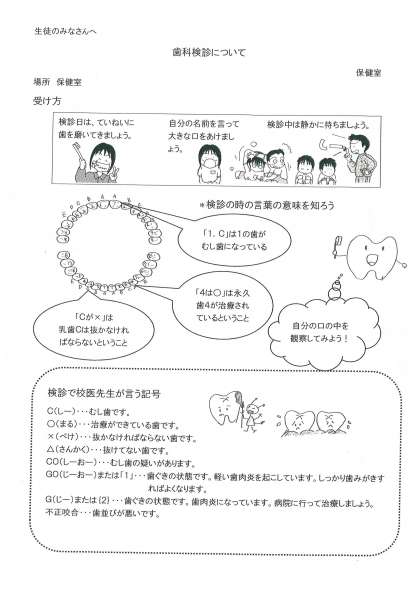 生徒のみなさんへ
歯科検診について
保健室
場所 保健室
受け方
検診日は、ていねいに
歯を磨いてきましょう。
自分の名前を言って
大きな口をあけまし
ょう。
検診中は静かに待ちましょう。
＊検診の時の言葉の意味を知ろう
「1．C」は1の歯が
むし歯になっている
「4は○」は永久
歯4が治療され
ているということ
「Cが×」は
乳歯Cは抜かなけれ
ばならないということ
自分の口の中を
観察してみよう！
検診で校医先生が言う記号
C(しー)・・・むし歯です。
○(まる)・・・治療ができている歯です。
×(ぺけ)・・・抜かなければならない歯です。
△(さんかく)・・・抜けてない歯です。
CO(しーおー)・・・むし歯の疑いがあります。
GO(じーおー)または「1」・・・歯ぐきの状態です。軽い歯肉炎を起こしています。しっかり歯みがきす
ればよくなります。
G(じー)または{2}・・・歯ぐきの状態です。歯肉炎になっています。病院に行って治療しましょう。
不正咬合・・・歯並びが悪いです。